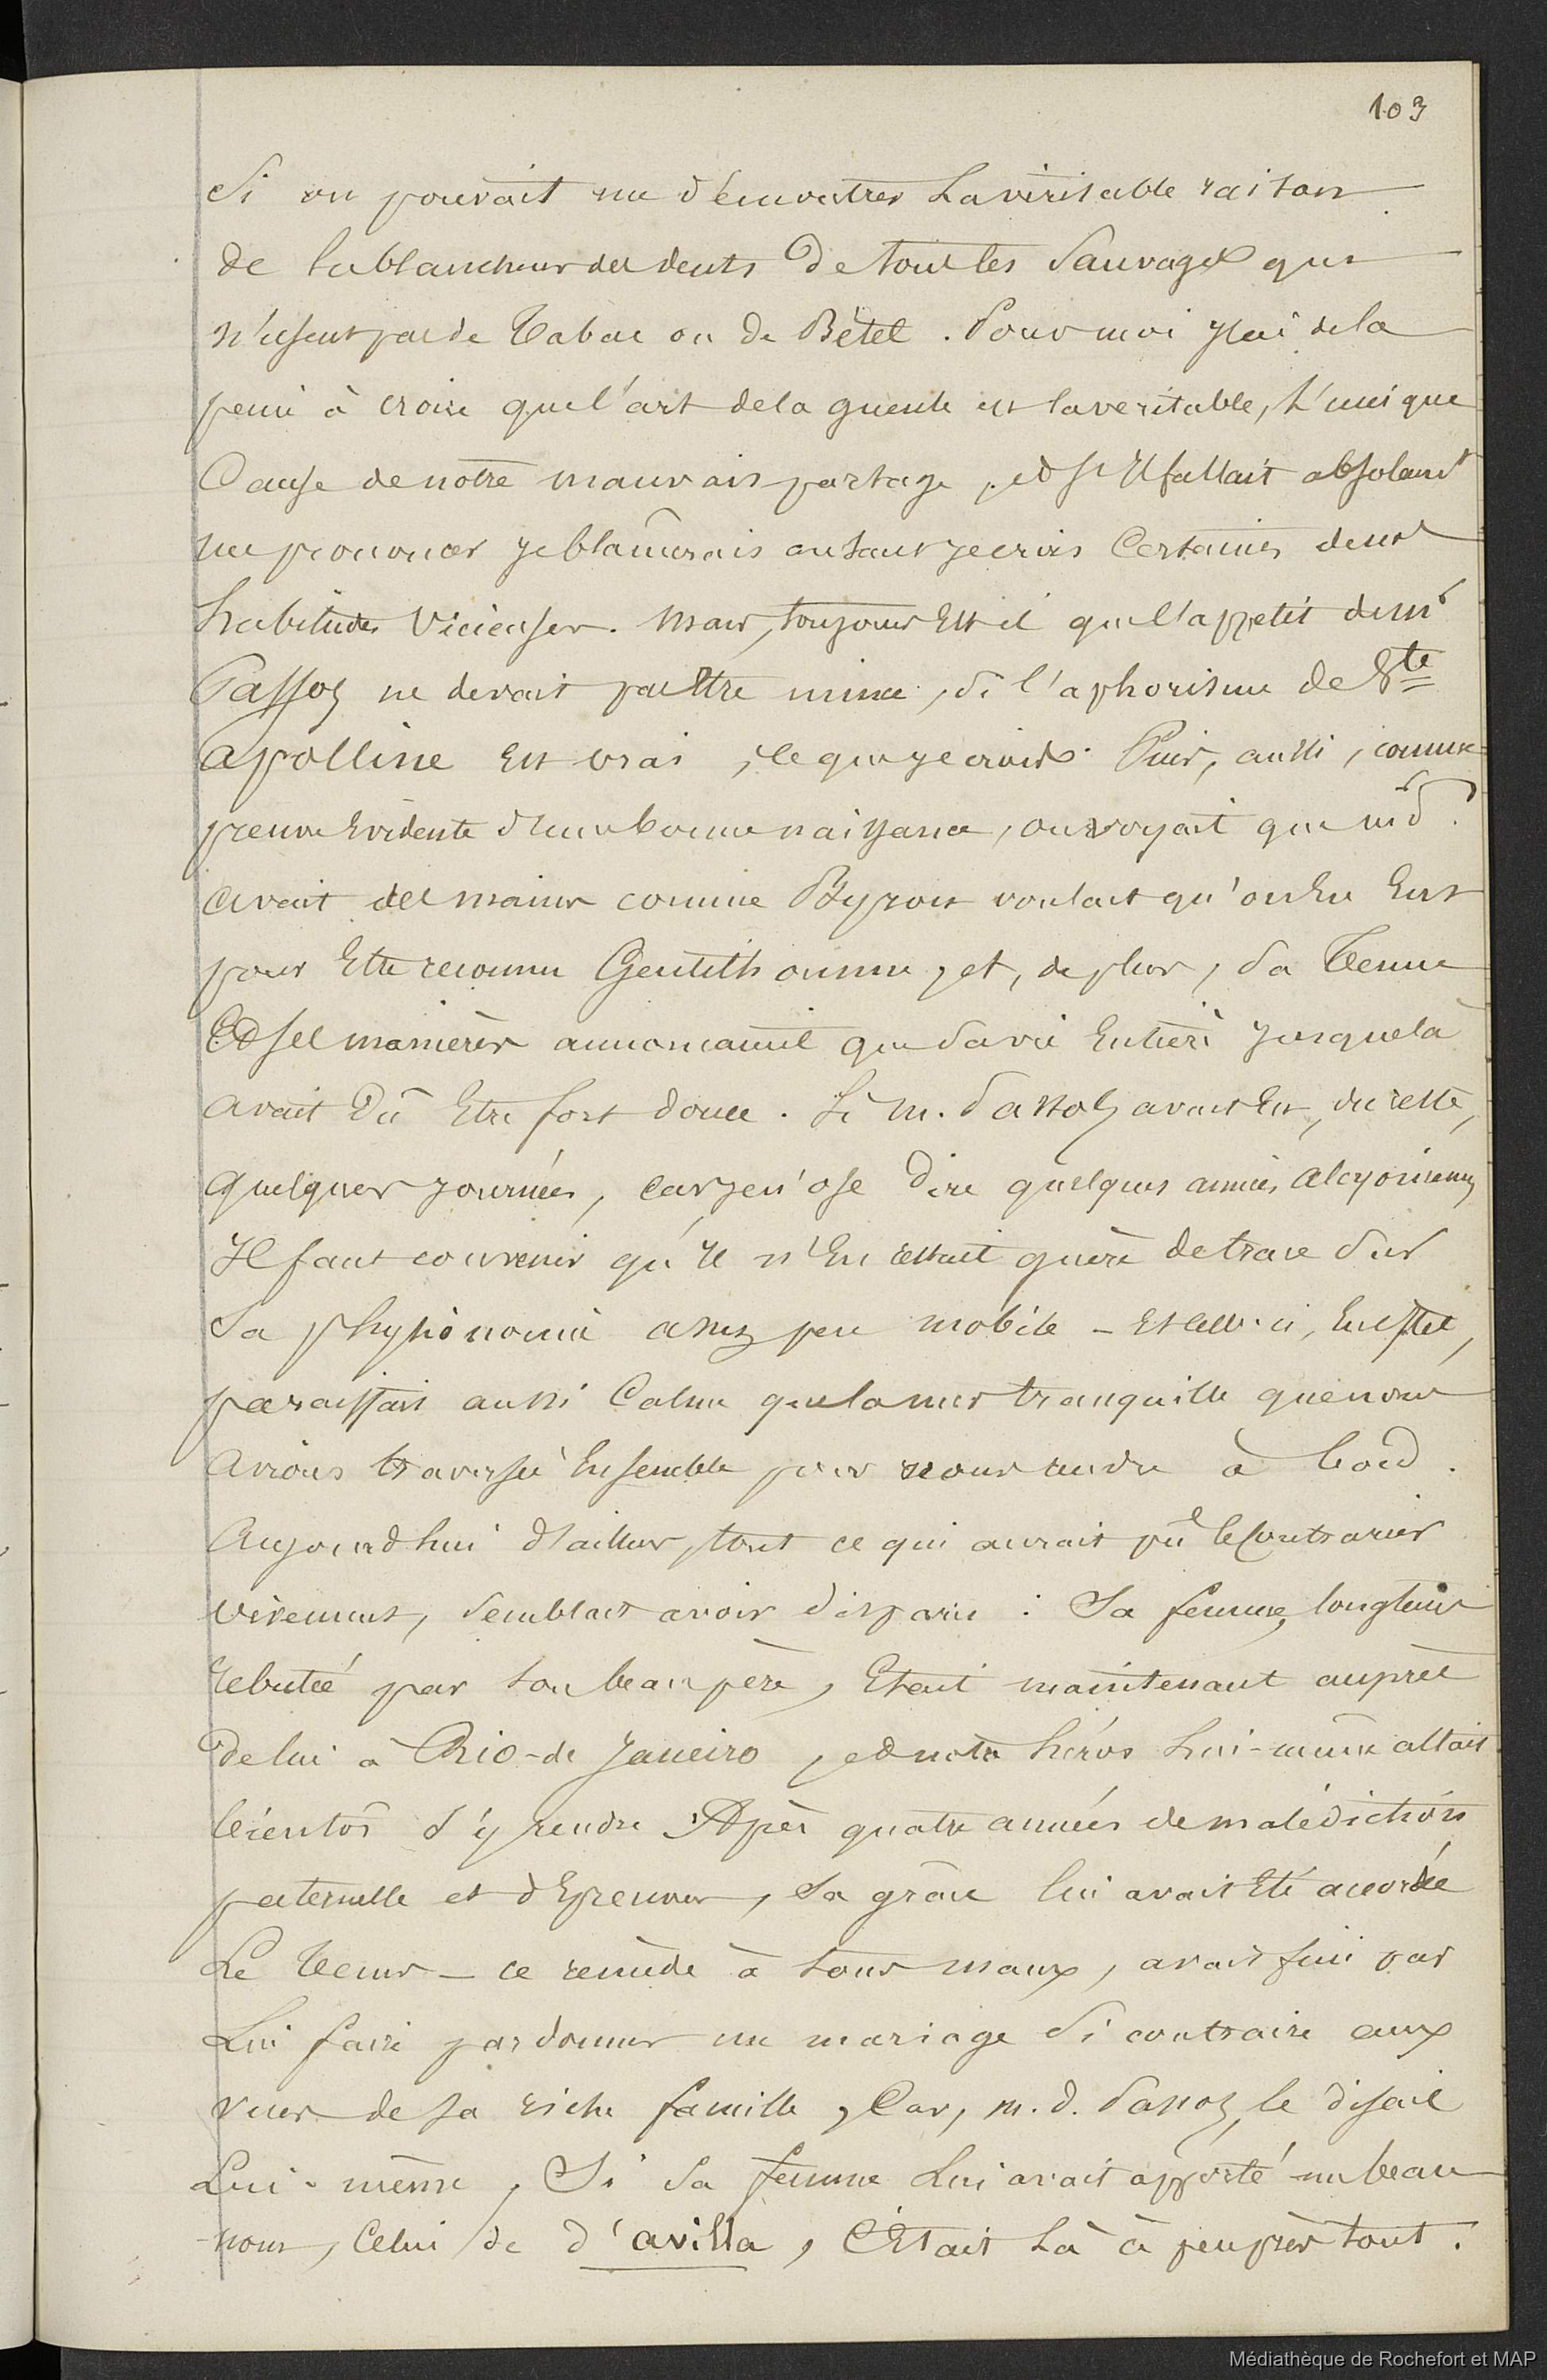 103
Si on pouvait me démontrer la véritable raison
de la blancheur des dents de tous les Sauvages qui
n'usent pas de Tabac ou de Bétel. Pour moi j'ai de la
peine à croire que l'art de la gueule est la veritable, l'unique
Cause de notre mauvais partage, et s'il fallait absolument
me prononcer je blâmerais autant je crois Certaines de nos
habitudes Vicieuses. Mais, toujours est-il que l'appetit de mr
Passoz ne devait pas être mince, si l'aphorisme de Ste
Apolline est vrai, ce que je crois. Puis, aussi, comme
preuve Evidente d'une bonne naissance, on voyait que m d.
avait des mains comme Byron voulait qu'on En Eut
pour Etre reconnu Gentilhomme, et, de plus, Sa Tenue
Et ses manières annoncaient que sa vie Entière jusque là
avait Dû Etre fort douce. Si M. Dassoz avait Eu, du reste,
quelques journées, car je n'ose Dire quelques années alcyoniennes
Il faut convenir qu'il n'En restait guère de trace sur
Sa physionomie assez peu mobile - Et celle-ci, En effet,
paraissait aussi Calme que la mer tranquille que nous
avions traversée Ensemble pour nous rendre à bord.
Aujourdhui d'ailleurs, tout ce qui aurait pû le Contrarier
vivement, semblait avoir disparu : Sa femme, longtems
rebutée par son beau père, Etait maintenant auprès
de lui à Rio-de Janeiro, et notre héros lui-même allait
bientôt s'y rendre. Après quatre années de malédiction
paternelle et d'Epreuves, Sa grâce lui avait Eté accordée
Le Tems - ce remède à tous maux, avait fini par
Lui faire pardonner un mariage si contraire aux
vues de sa riche famille, Car, m. d. Dassoz, le disait
Lui-même, Si Sa femme Lui avait apporté un beau
nom, Celui de d'avilla, C'Etait Là à peu près tout.
Médiathèque de Rochefort et MAP